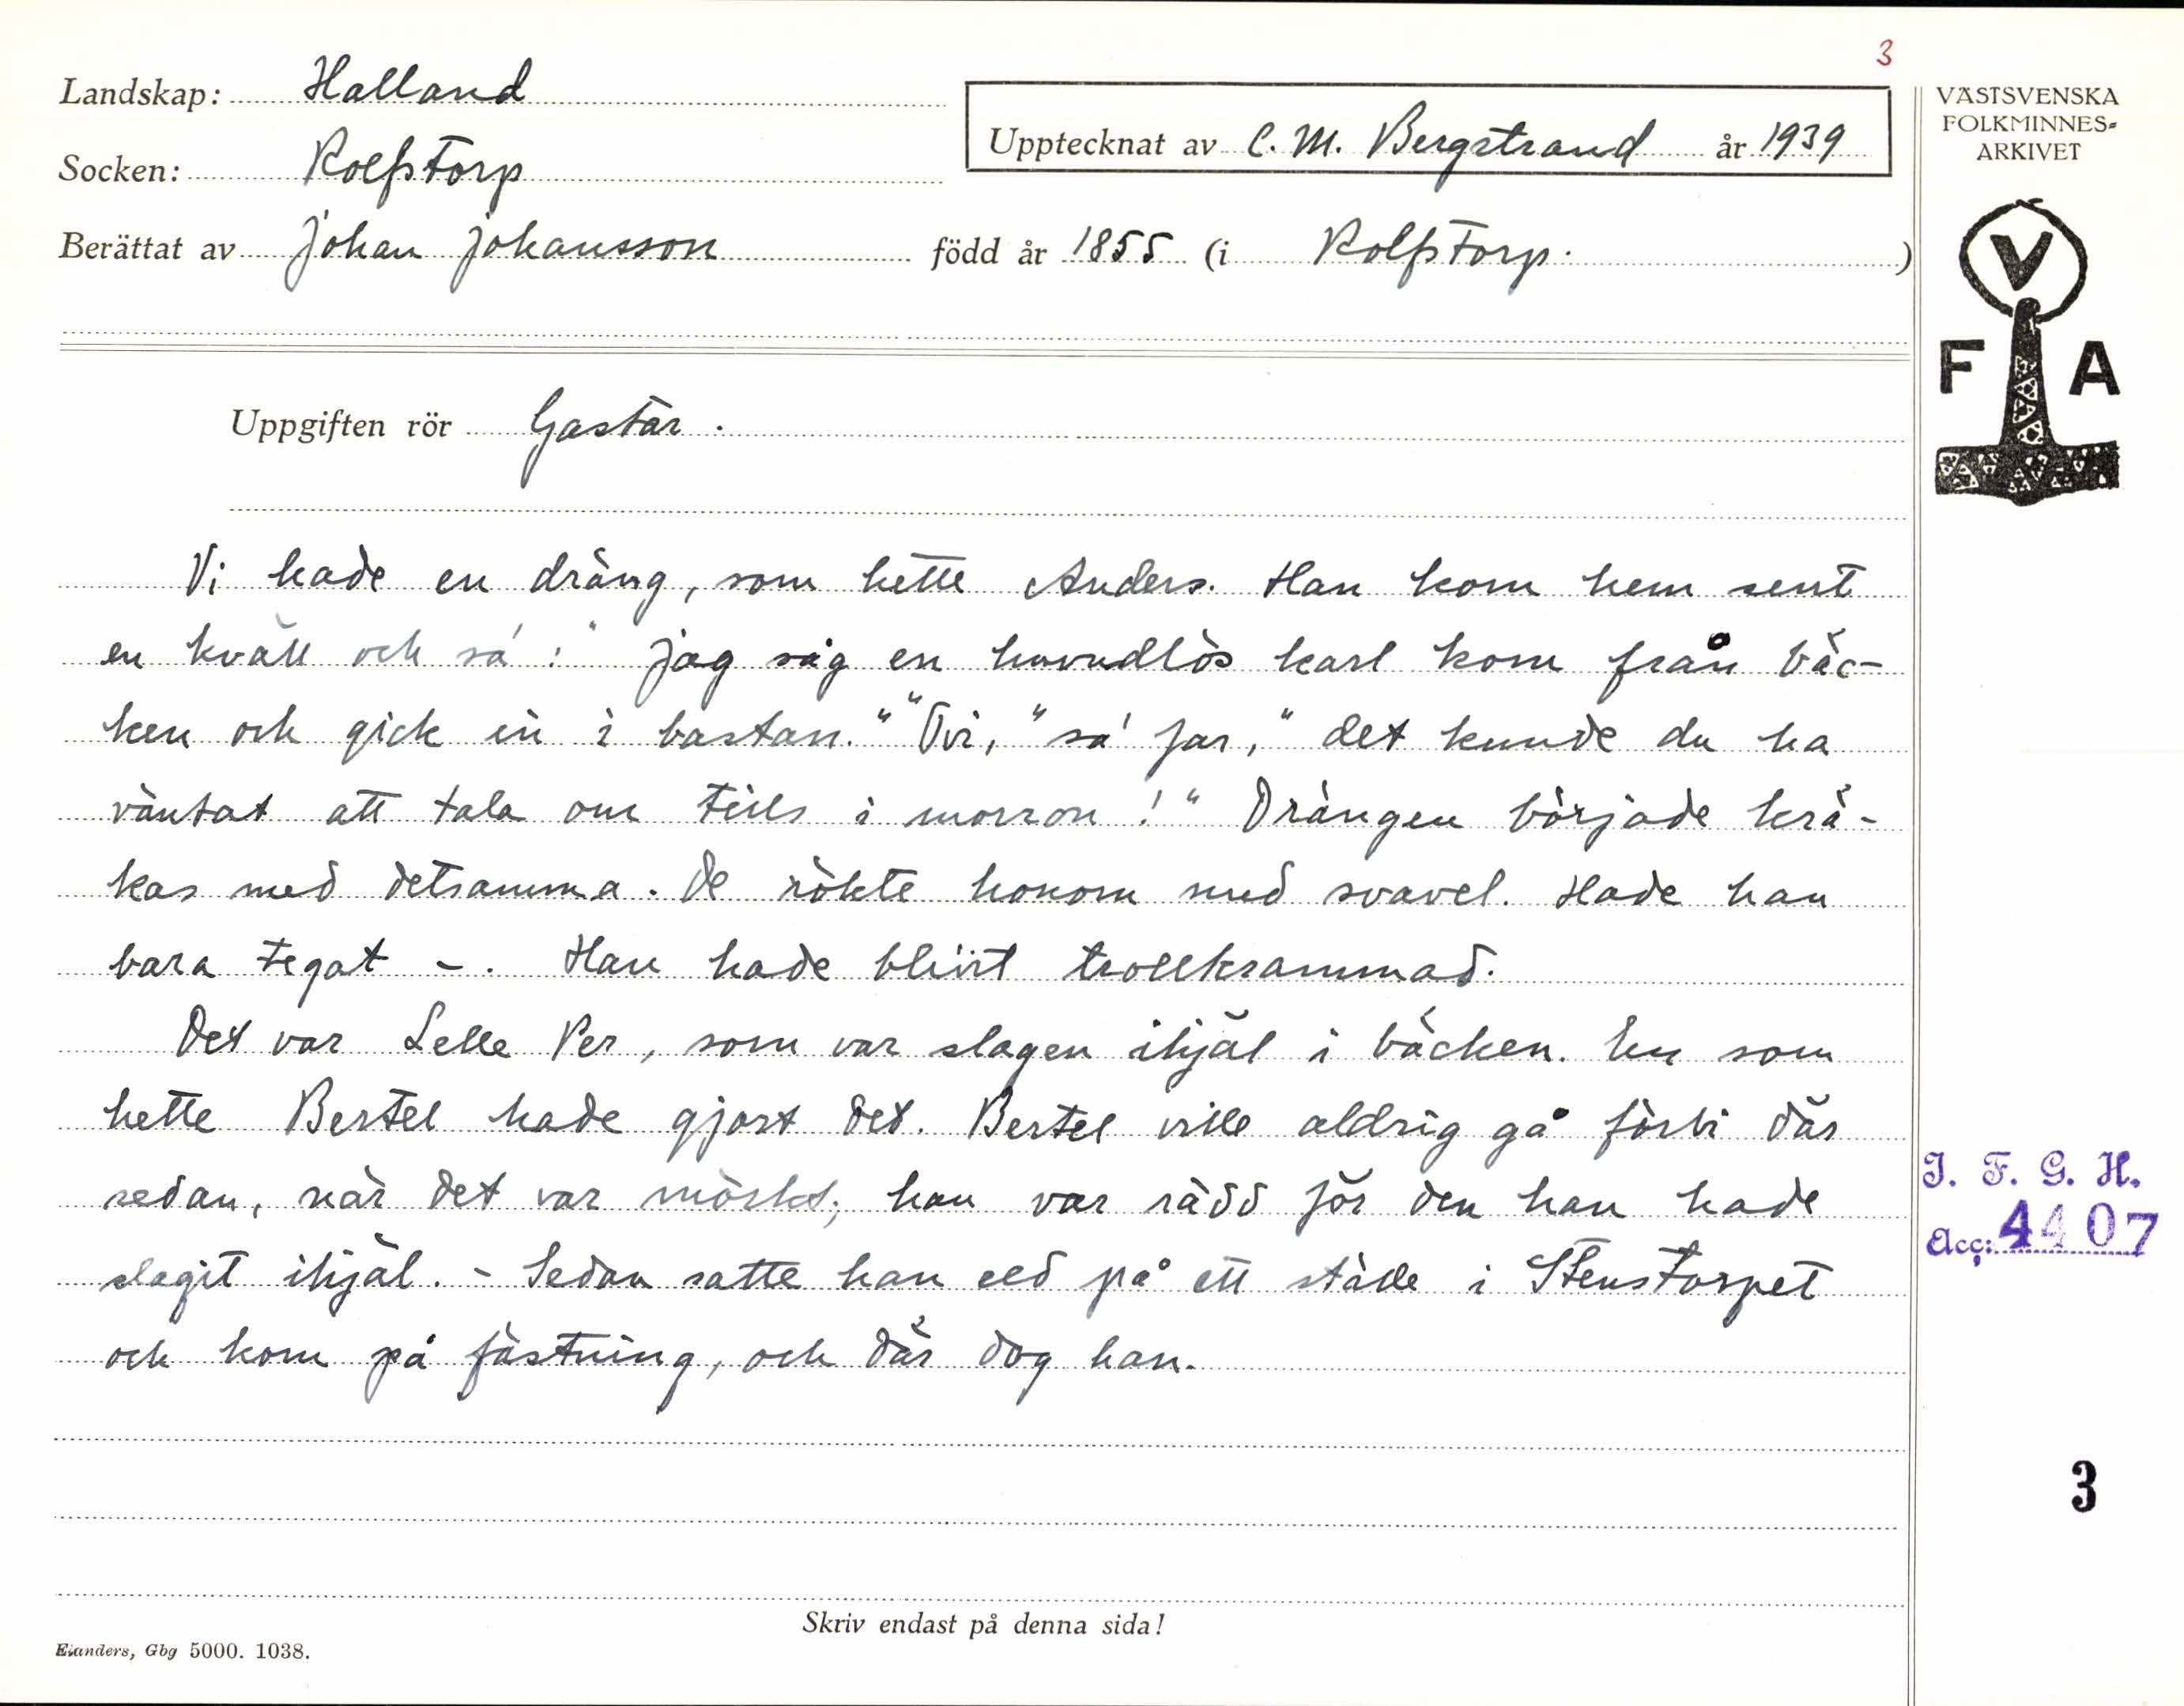 3
Landskap: Halland
Upptecknat av C. M. Bergstrand år 1939
Socken: Rolfstorp
Berättat av Johan Johansson född år 1855 (i Rolfstorp.)
VÄSTSVENSKA
FOLKMINNES=
ARKIVET
V
F A
Uppgiften rör Gastar.
Vi hade en dräng, som hette Anders. Han kom hem sent
en kväll och sa': "Jag såg en huvudlös karl kom från bäc-
ken och gick in i bastan." "Tvi," sa' far, "det kunde du ha
väntat att tala om teils i morron!" Drängen började krä-
kas med detsamma. De rökte honom med svavel. Hade han
bara tegat -. Han hade blivit trollkrammad.
Det var Lelle Per, som var slagen ihjäl i bäcken. En som
hette Bertel hade gjort det. Bertel ville aldrig gå förbi där
sedan, när det var mörkt; han var rädd för den han hade
slagit ihjäl. - Sedan satte han eld på ett ställe i Stenstorpet
och kom på fästning, och där dog han.
I. F. G. H.
Acc: 4407
3
Skriv endast på denna sida!
Elanders, Gbg 5000. 1038.